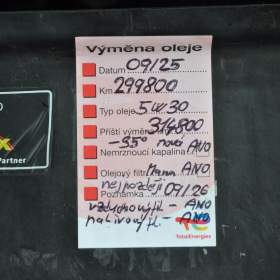 Výměna oleje
Datum 09/25
Km 299800
Typ oleje 5W30
Příští výměna 314800
-35° nová
Nemrznoucí kapalina ANO
Olejový filtr Mann ANO
nejpozději
Poznámka 09/26
vzduchový f. - ANO
palivový f. - ANO
TotalEnergies
Partner